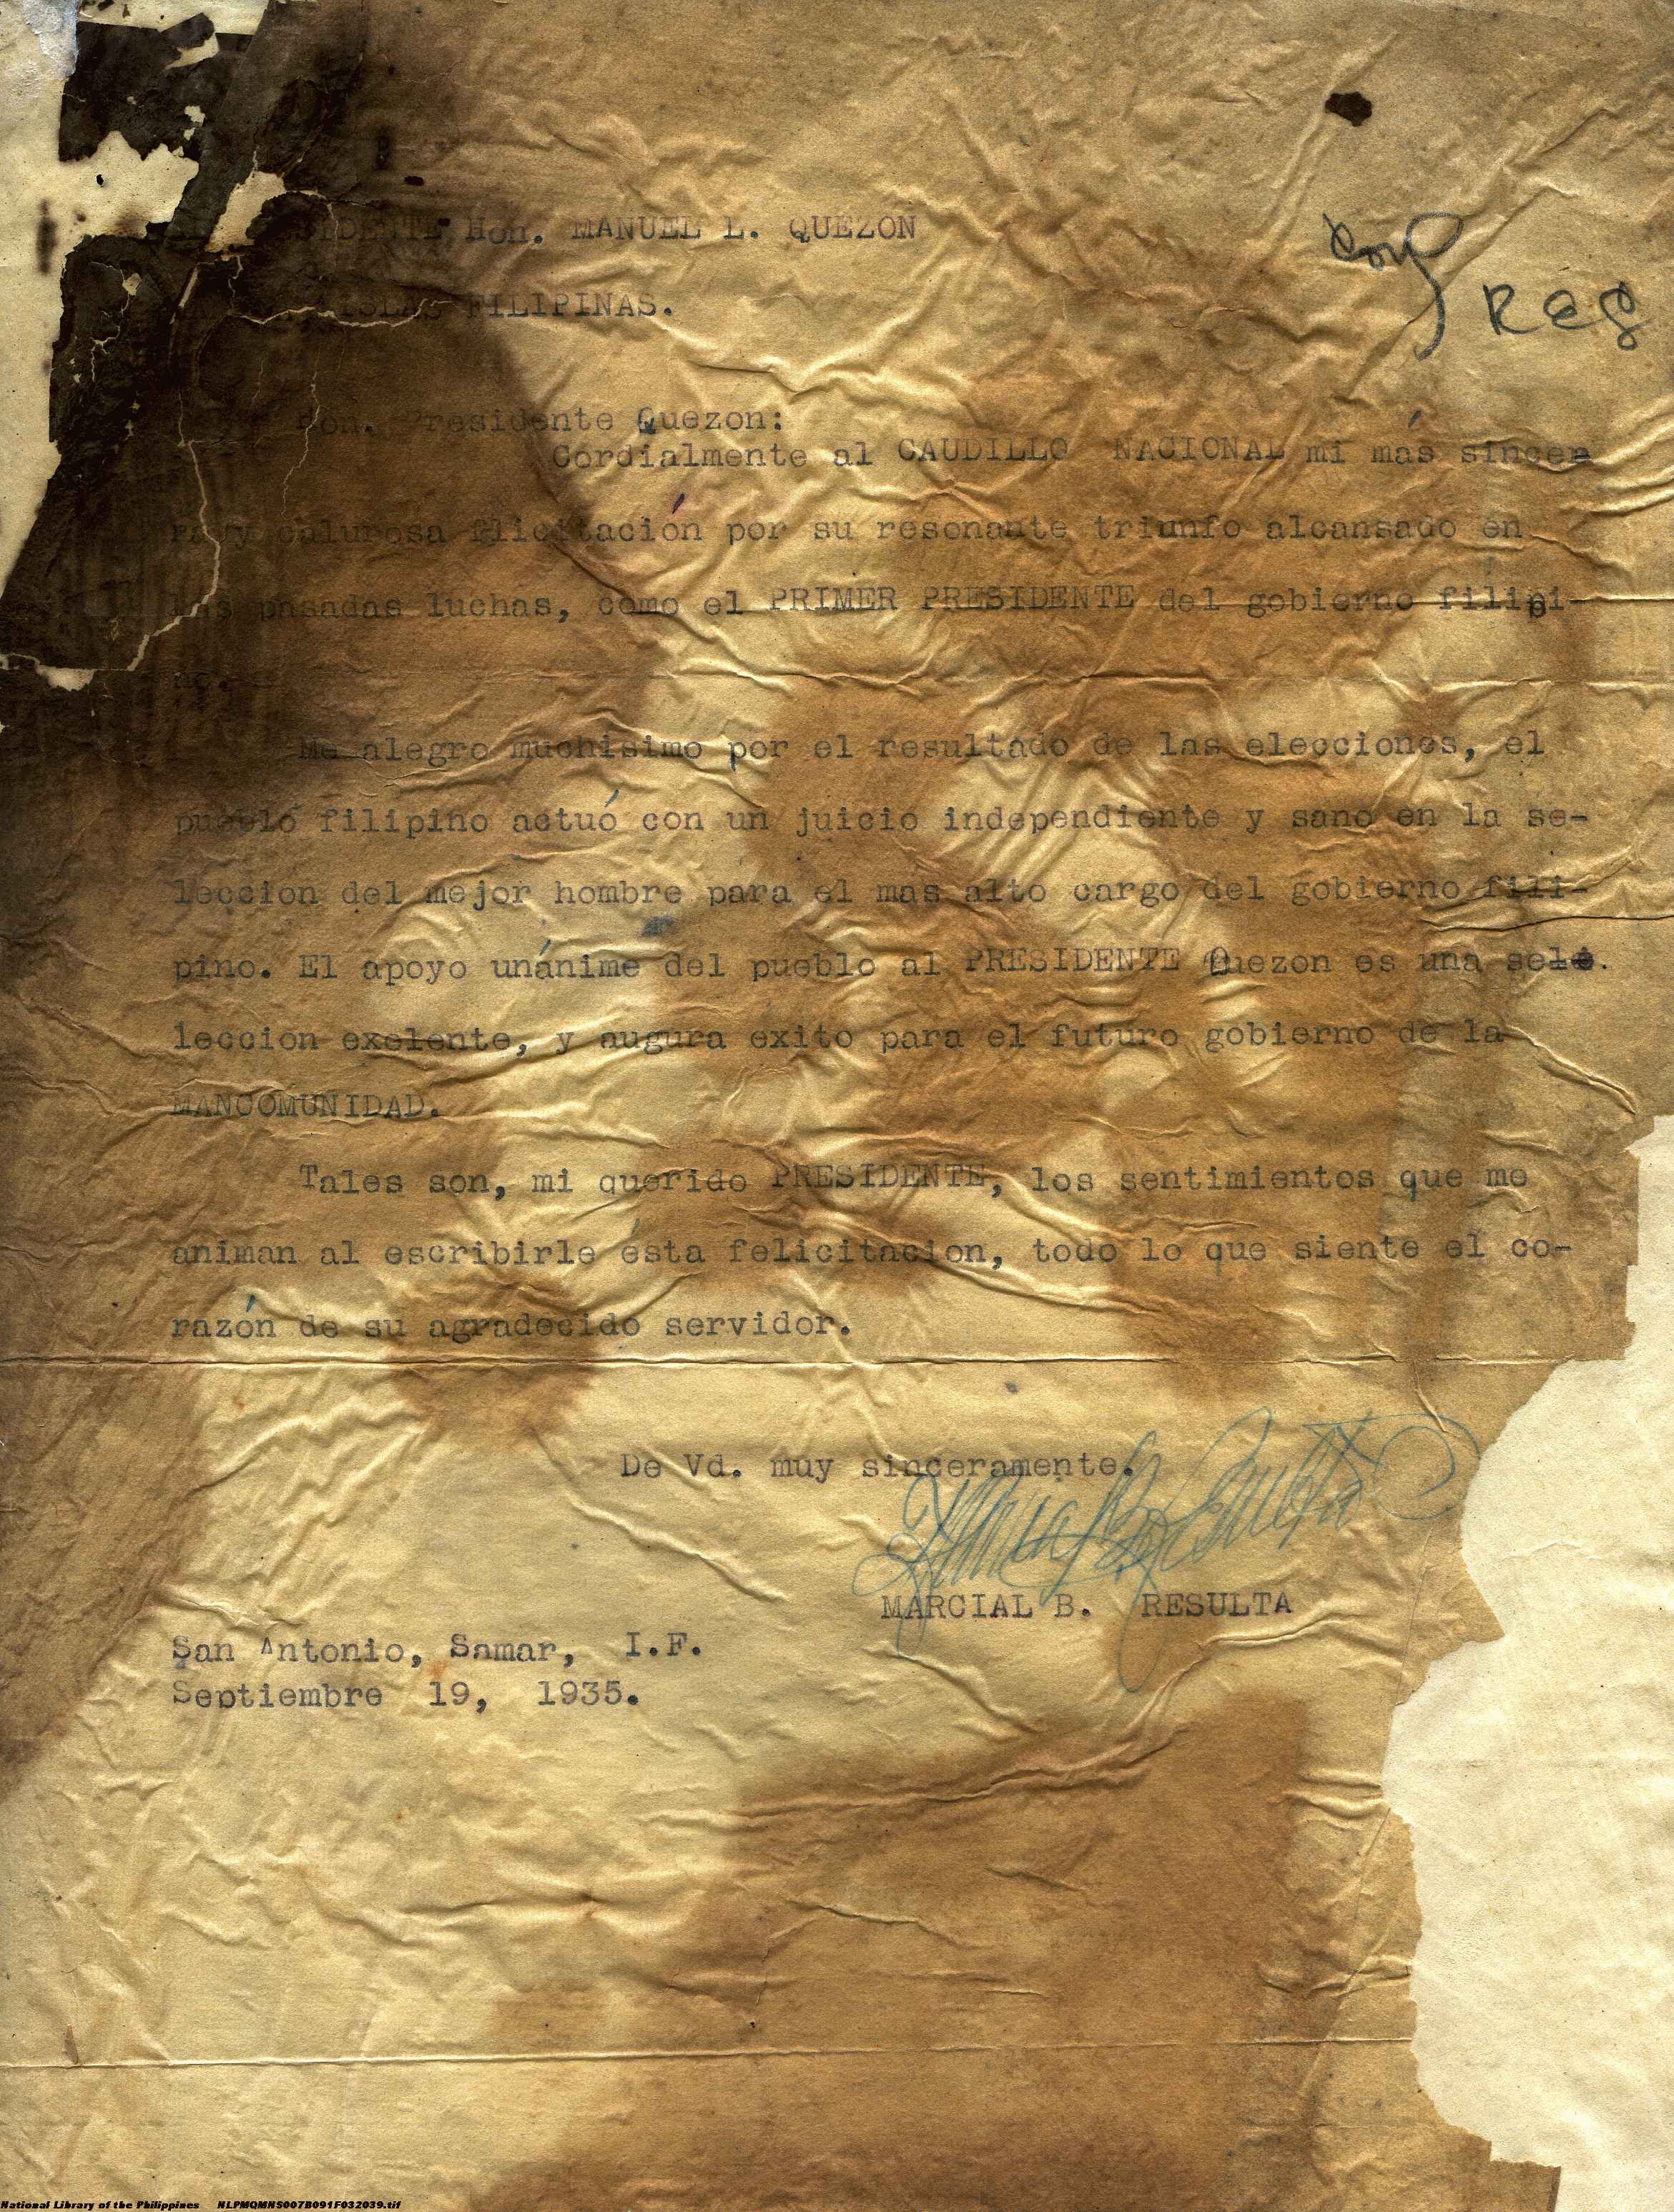 Hon. MANUEL L. QUEZON
ISLAS FILIPINAS.
Cong
Res
Hon. Presidente Quezon:
Cordialmente al CAUDILLO NACIONAL mi más sincer
ra y calurosa flicitación por su resonante triunfo alcansado en
las pasadas luchas, como el PRIMER PRESIDENTE del gobierno filipi-
no.
Me alegro muchisimo por el resultado de las elecciones, el
pueblo filipino actuó con un juicio independiente y sano en la se-
leccion del mejor hombre para el mas alto cargo del gobierno fili-
pino. El apoyo unánime del pueblo al PRESIDENTE Quezon es una se
leccion exelente, y augura exito para el futuro gobierno de la
MANCOMUNIDAD.
Tales son, mi querido PRESIDENTE, los sentimientos que me
animan al escribirle ésta felicitacion, todo lo que siente el co-
razón de su agradecido servidor.
De Vd. muy sinceramente.
MARCIAL B. RESULTA
San Antonio, Samar, I.F.
Septiembre 19, 1935.
National Library of the Philippines NLPMQMNS007B091F032039.tif